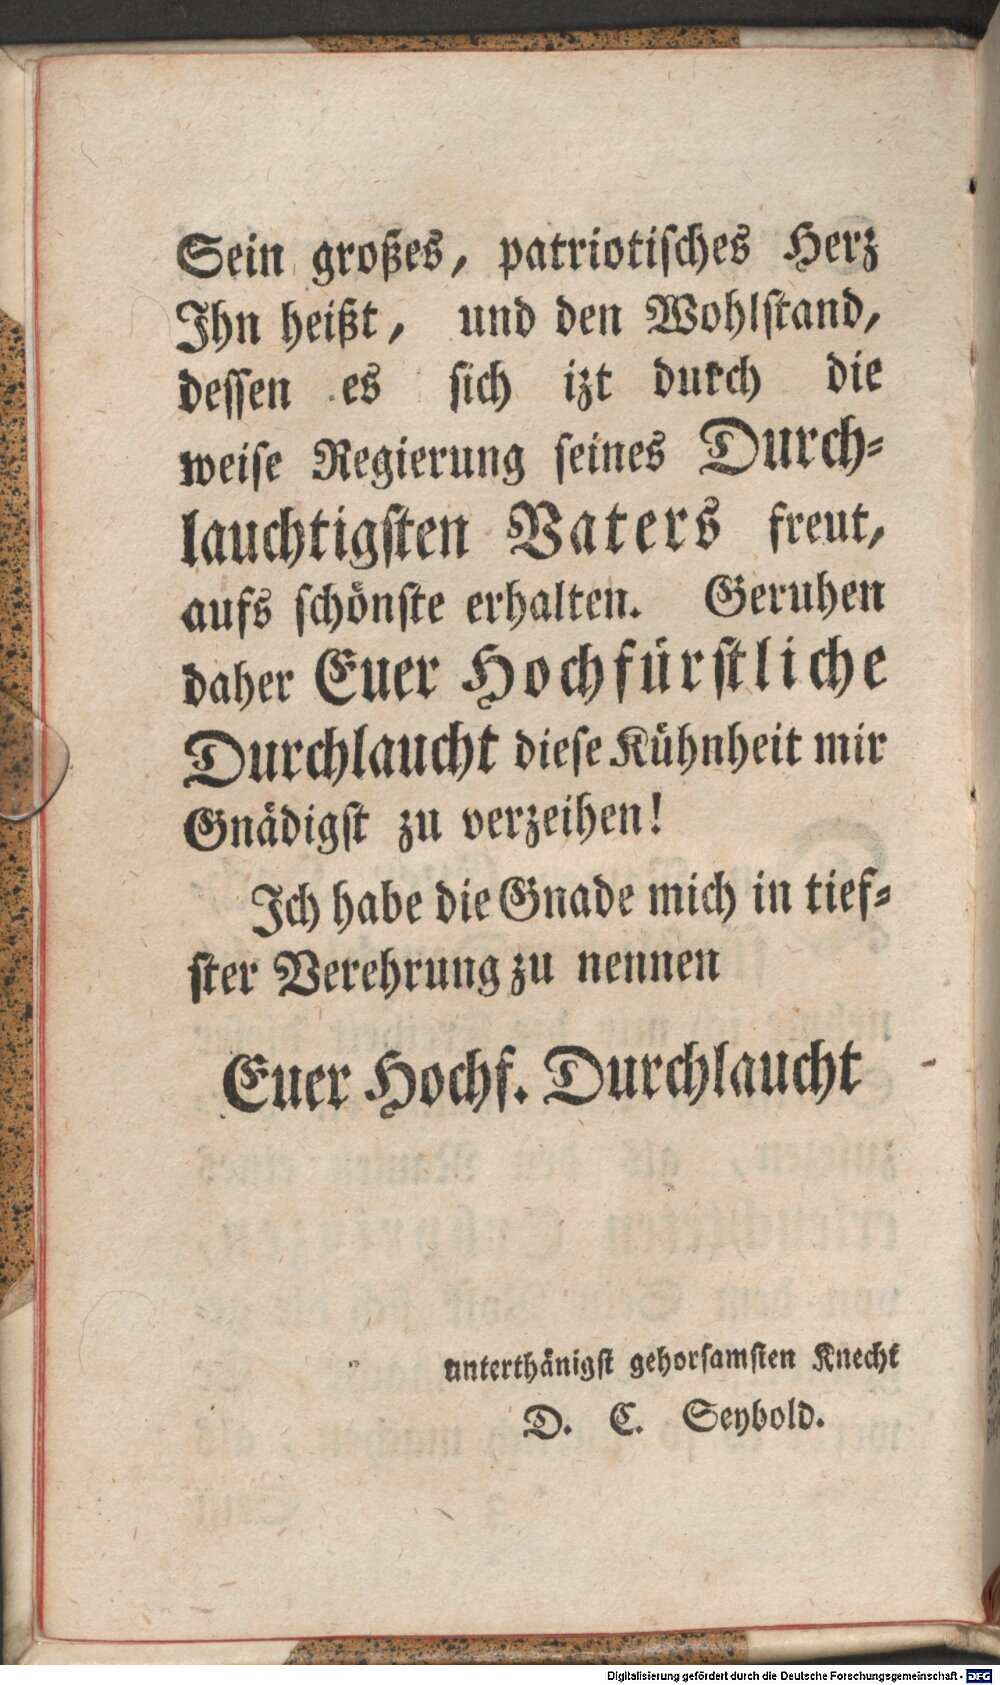 Sein großes, patriotisches Herz
Ihn heißt, und den Wohlstand,
dessen es sich izt durch die
weise Regierung seines Durch-
lauchtigsten Vaters freut,
aufs schönste erhalten. Geruhen
daher Euer Hochfürstliche
Durchlaucht diese Kühnheit mir
Gnädigst zu verzeihen!
Ich habe die Gnade mich in tief-
ster Verehrung zu nennen
Euer Hochf. Durchlaucht
unterthänigst gehorsamsten Knecht
D. C. Seybold.
Digitalisierung gefördert durch die Deutsche Forschungsgemeinschaft - DFG